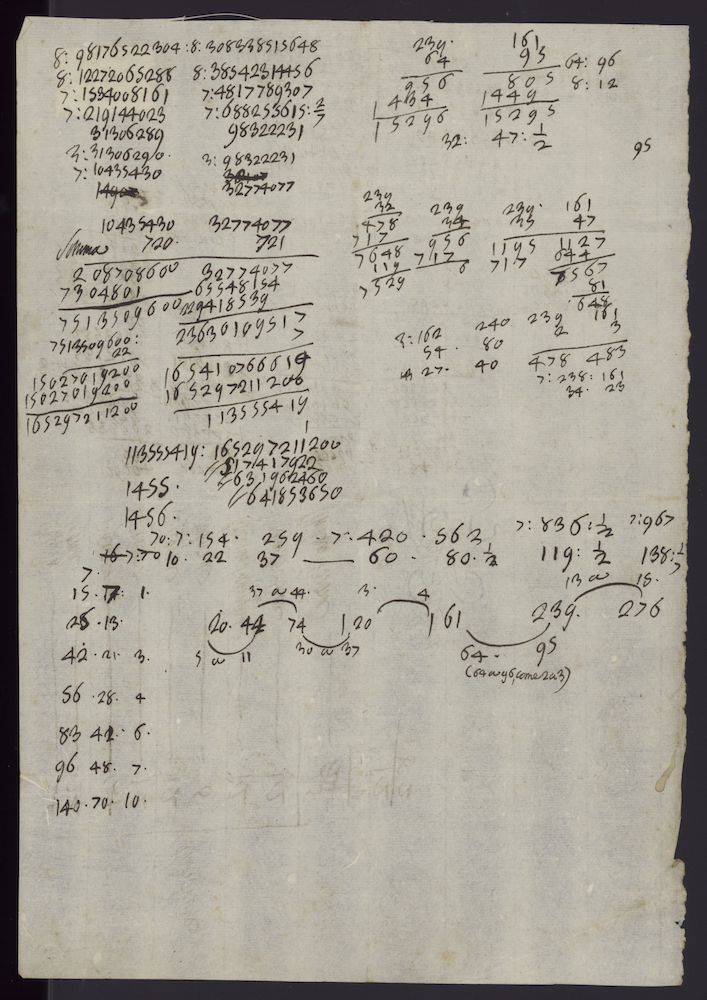 8: 98176522304 : 8: 308338515648
8: 12272065288 8: 38542314456
7: 1534008161 7: 4817789307
7: 219144023 7: 688255615: 2/7
31306289 98322231
3: 31306290. 3: 98322231
7: 10435430
32774077
10435430 32774077
Somma 720. 721
208708600 32774077
7304801 65548154
7513509600 229418539
7513509600: 23630109517
22 7
15027019200 165410766619
15027019200 165297211200
165297211200 113555419
1
113555419: 165297211200
517417922
1455. 631962460
641853650
1456.
239. 161
64 95
956 805
1434 1449
15296 15295
64: 96
8: 12
32: 47: 1/2
95
239 239 239. 161
32 34 35 47
478 956 1195 1127
717 717 717 644
7648 6 7567
119 81
7529 648
3: 162 240 239 161
54. 80 2 3
27. 40 478 483
7: 238: 161
34. 23
70: 7: 154. 259. 7: 420. 562 7: 836: 1/2 7: 967
7: 70 10. 22 37 — 60. 80. 1/2 119: 1/2 138: 1/7
7.
15. 7. 1.
25. 13.
42. 21. 3.
56. 28. 4
83 42. 6.
96 48. 7.
140. 70. 10.
37 a 44. 3. 4 13 a 15.
20. 44 74 120 161 239. 276
5 a 11 30 a 37 64. 95
(64 a 96, come 2 a 3)